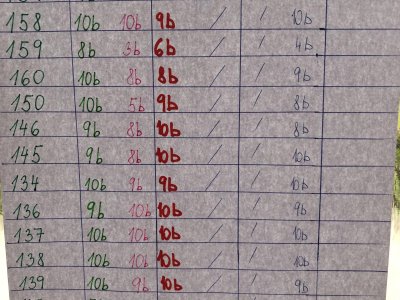 158 10b 10b 9b / / 10b
159 8b 3b 6b / / 4b
160 10b 8b 8b / / 9b
150 10b 5b 9b / / 8b
146 9b 8b 10b / / 8b
145 9b 8b 10b / / 10b
134 10b 9b 9b / / 10b
136 9b 10b 10b / / 9b
137 10b 10b 10b / / 10b
138 10b 10b 10b / / 10b
139 10b 9b 10b / / 9b